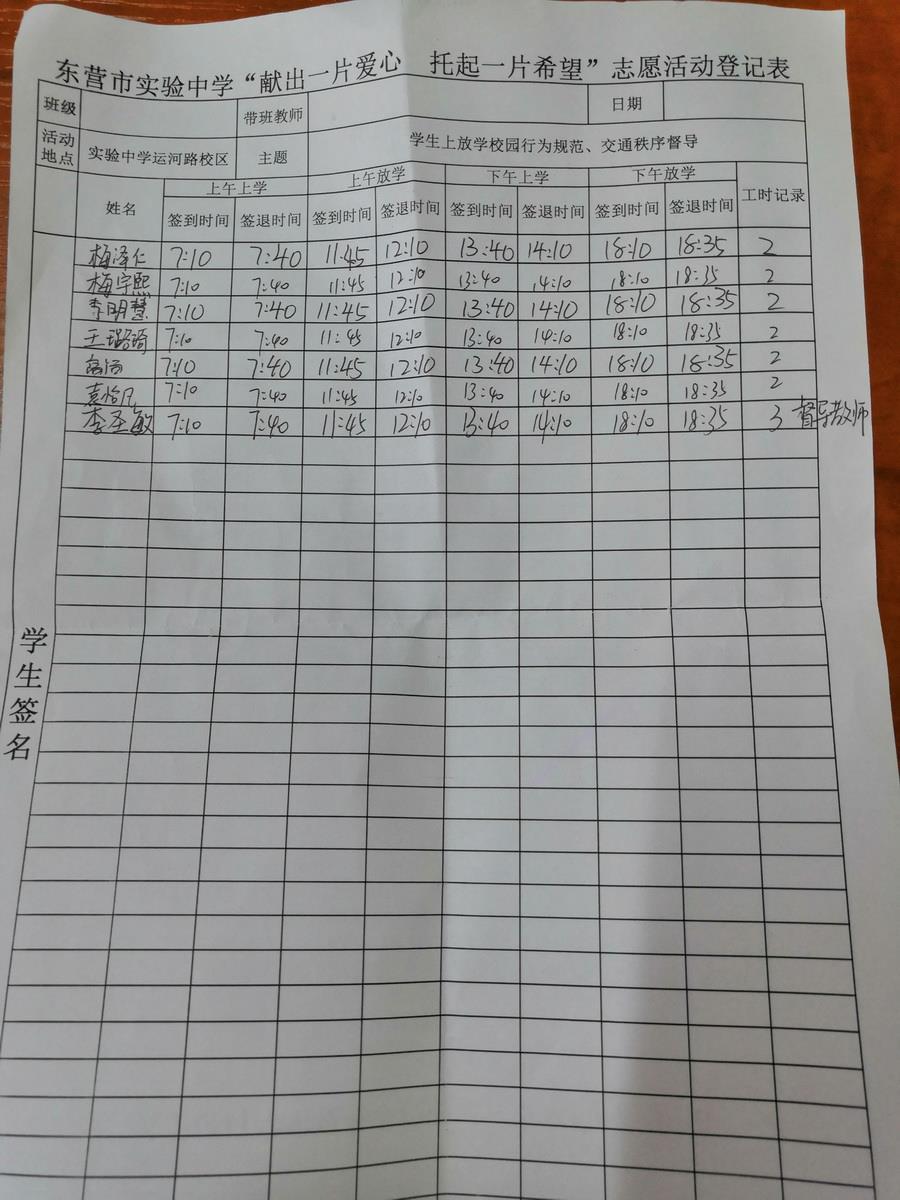 东营市实验中学“献出一片爱心 托起一片希望”志愿活动登记表
班级 带班教师 日期
活动地点 实验中学运河路校区 主题 学生上放学校园行为规范、交通秩序督导
姓名 上午上学 上午放学 下午上学 下午放学 工时记录
签到时间 签退时间 签到时间 签退时间 签到时间 签退时间 签到时间 签退时间
梅泽仁 7:10 7:40 11:45 12:10 13:40 14:10 18:10 18:35 2
梅宇熙 7:10 7:40 11:45 12:10 13:40 14:10 18:10 18:35 2
李明慧 7:10 7:40 11:45 12:10 13:40 14:10 18:10 18:35 2
王璐琦 7:10 7:40 11:45 12:10 13:40 14:10 18:10 18:35 2
7:10 7:40 11:45 12:10 13:40 14:10 18:10 18:35 2
7:10 7:40 11:45 12:10 13:40 14:10 18:10 18:35 2
李圣敏 7:10 7:40 11:45 12:10 13:40 14:10 18:10 18:35 3 督导教师
学生签名